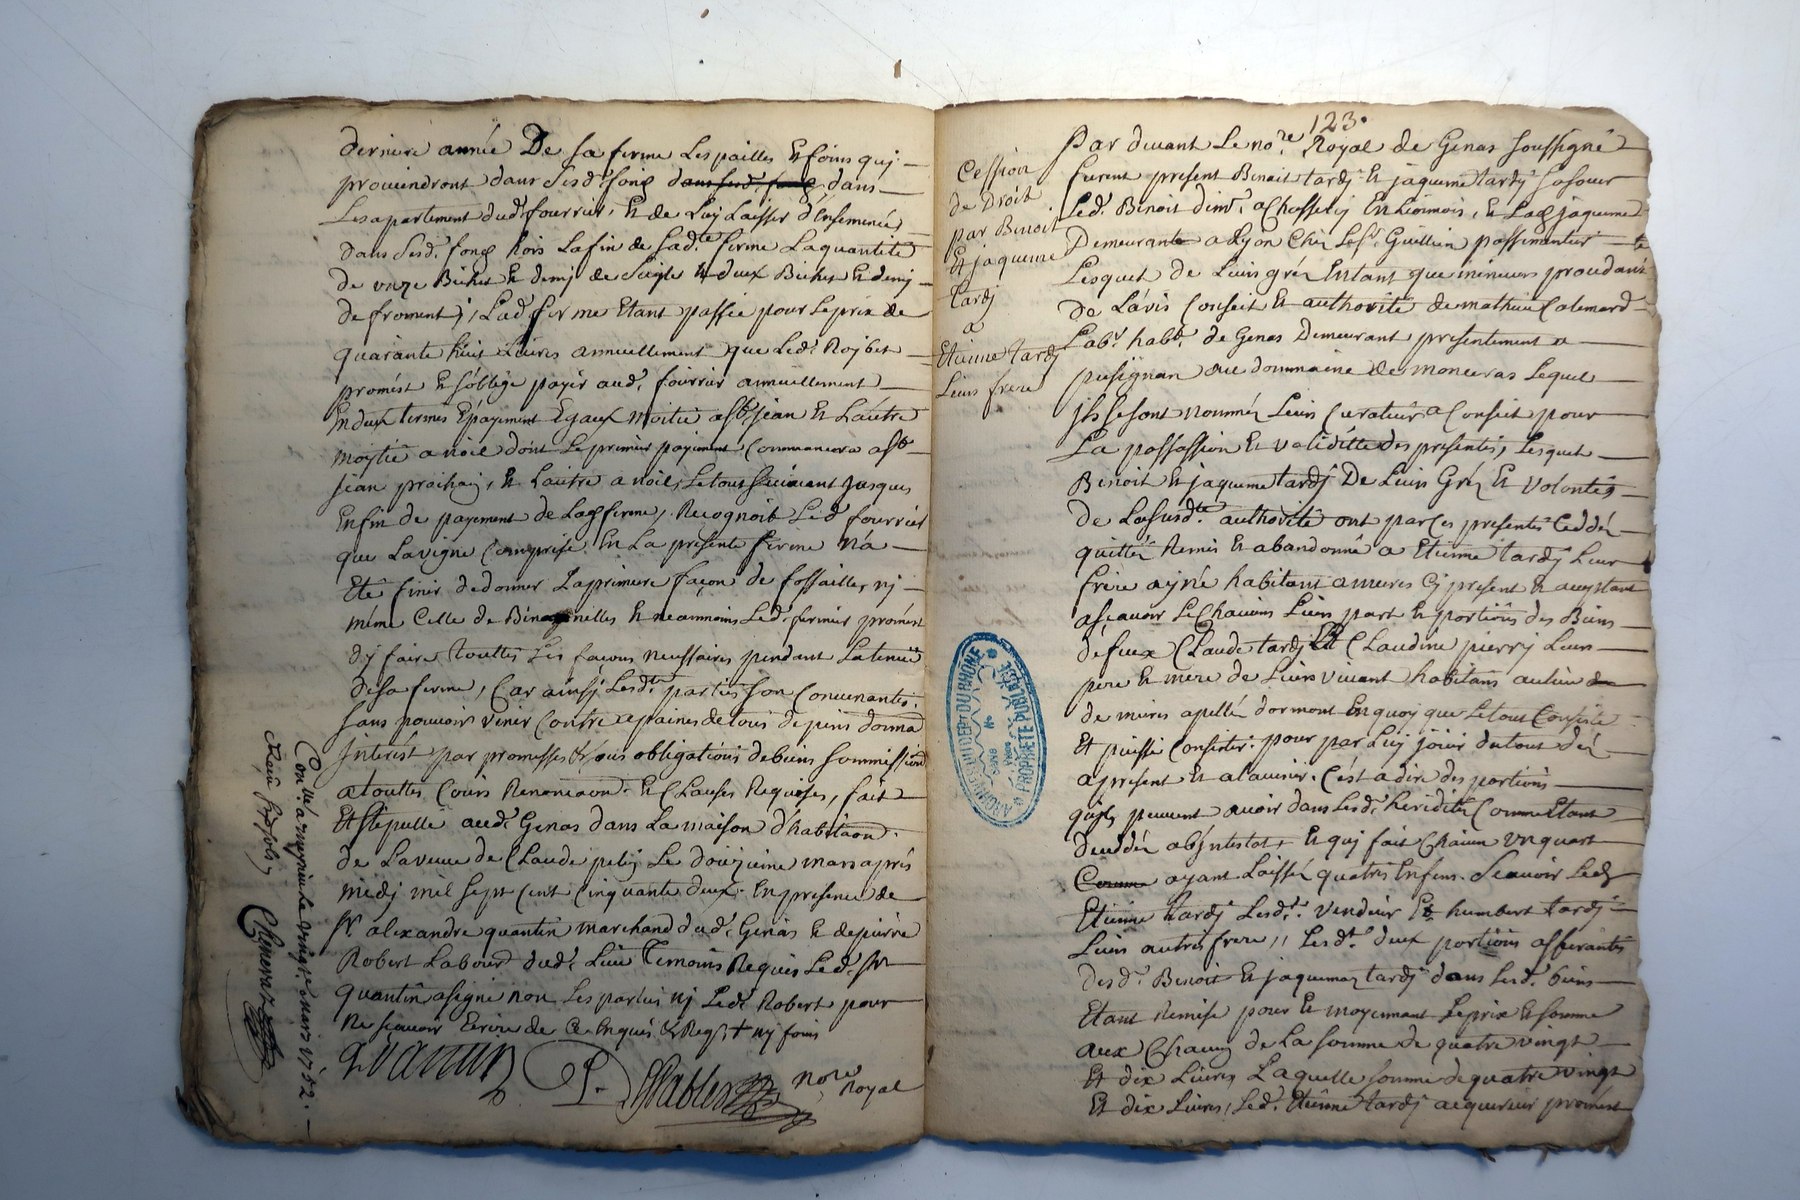 derniere année De sa ferme Les pailles et foins quj
proviendront dans Sesd. fong dans
Les apartement dud. fourrier, et de Luj Laisser d'Ensemencé
dans Sesd. fong hors La fin de Sad.te ferme La quantité
de unze Bichet et demj de Seigle et deux Bichet et demj
de froment; Lad. ferme Etant passée pour Le prix de
quarante huit Livres annuellement que Led. Rojbet
promést et s'oblige payer aud. fourrier annuellement
En deux termes Epayement Egaux moitié a st jean et L'autre
moytié a noël dont Le premier payement Commancera a st
jean prochain, et L'autre a noël, Le tout Suivant jusques
Enfin de payement de Lad. ferme, Recognoit Led. fourrier
que La vigne Comprise En La presente ferme n'a
Eté finir de donner La primiere façon de fossailler, nj
méme Celle de et neanmoins Led. fermier promést
dÿ faire touttes Les façons nessaires pendant La tenue
de sa ferme, Car ainsj Lesd. parties son Convenantes
sans pouvoir venir Contre a paines de tous depens domma
Interést par promesses et sous obligations de biens sommissions
a touttes Cours Renonciaon. et Clauses Requises, fait
Et stepullé aud. Genas dans La maison d'habitaon.
de La veuve de Claude petit Le douzieme mars aprés
midj mil sept Cent Cinquante deux. En presence de
sr alexandre quantin marchand dud. Genas et de pierre
Robert Labour dud. Lieu Temoins Requis Led. sr
quantin a signé non Les parties nj Led. Robert pour
ne sçavoir Ecrire de Ce Enquis et Reqs + nj fons
quantin P. Chables nore Royal
Con.llé a meyzieu Le vingt Mars 1752.
Reçu sols
Chenevaz
123.
Cession
de Droit
par Benoit
Et jaqueme
tardj
a
Etienne tardj
Leur frere
Par devant Le nore. Royal de Genas soussigné
furent present Benoit tardj et jaqueme tardj sa sœur
Led. Benoit dem.t a Chasselij En Lionnois, et Lad. jaqueme
Demeurante a Lyon Chez Le sr. Guillin passementier
Lesquel de Leurs gréz Entant que mineurs procedants
de L'avis Conseit et authorité de mathieu Calemard
Labr. habt. de Genas Demeurant presentement a
pusignan au dommaine de monceras Lequel
jls se sont nommés Leurs Curateur a Conseit pour
La passassion et validitté des presentes, Lesquel
Benoit et jaqueme tardj De Leurs Gréz et volontés
de La susd.te authorité ont par Ces presentes Ceddé
quitté Remis et abandonné a Etienne tardj Leur
frere ayné habitant a mures Cj present et aceptant
asçavoir Le Chacuns Leurs part et portions des Biens
de feux Claude tardj Et Claudine pierrj Leurs
pere et mere de Leurs vivant habitans au lieu
de mures apellé dormont En quoy que Le tout Consiste
Et puisse Consister. pour par Luj joüir du tout déz
a present et a l'avenir. C'est a dire des portions
quils peuvent avoir dans Lesd. heriditéz Comme Etant
deceddéz abIntestat, et quj fait Chacun un quart
Comme ayant Laissés quatres Enfens. sçavoir Led.
Etienne tardj Lesd. vendeur Et humbert tardj
Leurs autres frere,, Lesd. deux portions afferantes
desd. Benoit et jaquemez tardj dans Lesd. biens
Etant Remise pour et moyennant Le prix et somme
aux Chacun de La somme de quatre vingt
Et dix Livres Laquelle somme de quatre vingt
Et dix Livres, Led. Etienne tardj acquereur promést
ARCHIVES DU DEPT DU RHONE
PROPRIETE PUBLIQUE